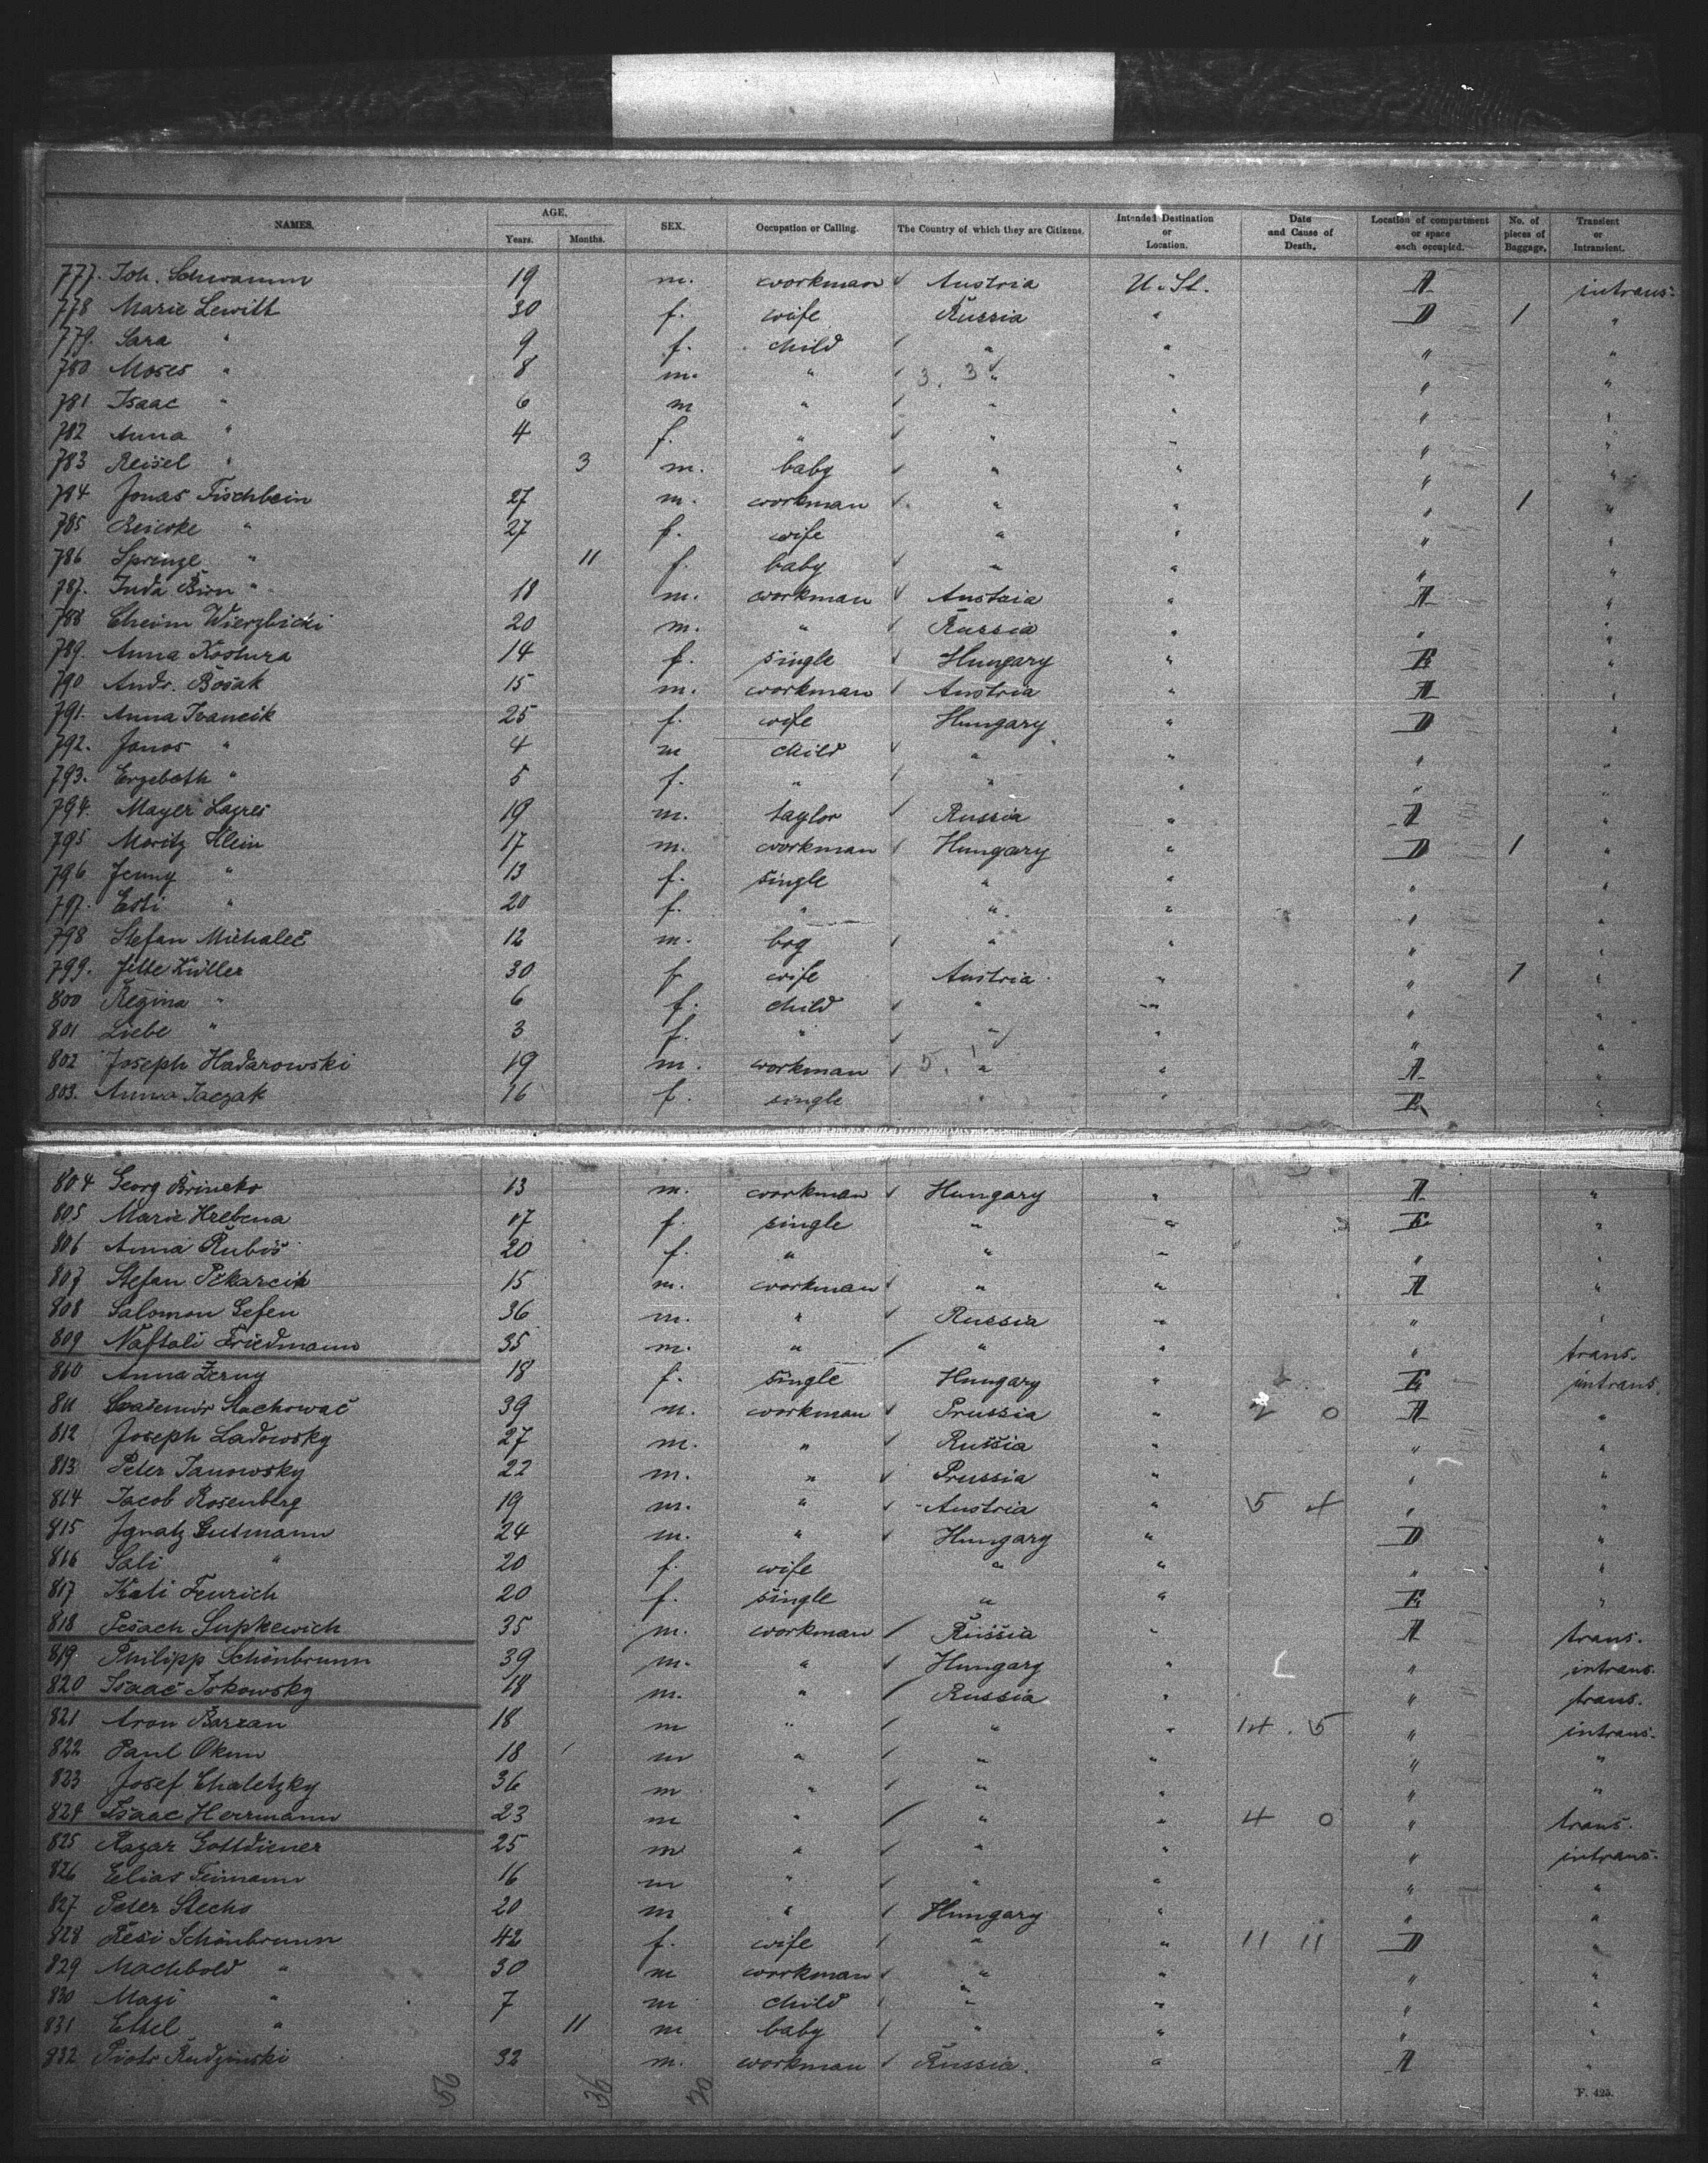 NAMES. AGE. Years. Months. SEX. Occupation or Calling. The Country of which they are Citizens. Intended Destination or Location. Date and Cause of Death. Location of compartment or space each occupied. No. of pieces of Baggage. Transient or Intransient.
777. Joh. Schwamm 19 m. workman Austria U. St. A intrans.
778 Marie Lewitt 30 f. wife Russia " D 1 "
779. Sara " 9 f. child " " " "
780 Moses " 8 m. " " " " "
781 Isaac " 6 m " " " " "
782 Anna " 4 f. " " " " "
783 Reisel " 3 m. baby " " " "
784 Jonas Fischbein 27 m. workman " " " 1 "
785 " 27 f. wife " " " "
786 Sprinze " 11 f. baby " " " "
787. Juda Birn " 18 m. workman Austria " A "
788 Cheim Wierzbicki 20 m. " Russia " " "
789. Anna Kostura 14 f. single Hungary " E "
790 Andr. Bosak 15 m. workman Austria " A "
791. Anna Ivancik 25 f. wife Hungary " D "
792. Janos " 4 m child " " " "
793. Erzebeth " 5 f. " " " " "
794. Mayer Lazres 19 m. taylor Russia " A "
795 Moritz Klein 17 m. workman Hungary " D 1 "
796 Jenny " 13 f. single " " " "
797. Esti " 20 f. " " " " "
798 Stefan Michalec 12 m. boy " " " "
799. Jette Küller 30 f wife Austria " " 1 "
800 Regina " 6 f. child " " " "
801 Liebe " 3 f. " " " " "
802 Joseph Hadarowski 19 m. workman " " A "
803. Anna Jaczak 16 f. single " " E "
804 Georg Brincko 13 m. workman Hungary " A "
805 Marie Hrebena 17 f. single " " E "
806 Anna Rubis 20 f. " " " " "
807 Stefan Pekarcik 15 m. workman " " A "
808 Salomon Gefen 36 m. " Russia " " "
809 Naftali Friedmann 35 m. " " " " trans.
810 Anna Zerny 18 f. single Hungary " E intrans.
811 Stachowac 39 m. workman Prussia " 2 0 A "
812 Joseph Ladowsky 27 m. " Russia " " "
813 Peter Janowsky 22 m. " Prussia " " "
814 Jacob Rosenberg 19 m. " Austria " 5 4 " "
815 Ignatz Gutmann 24 m. " Hungary " D "
816 Sali " 20 f. wife " " " "
817 Kati Fenrich 20 f. single " " E "
818 Pesach Supkewich 35 m. workman Russia " A trans.
819. Philipp Schönbrunn 39 m. " Hungary " " intrans.
820 Isaac Jokowsky 18 m. " Russia " " trans.
821 Aron Barzan 18 m " " " 14. 5 " intrans.
822 Paul Okun 18 m " " " " "
823 Josef Chaletzky 36 m " " " " "
824 Isaac Herrmann 23 m " " " 4 0 " trans.
825 Razar Gottdiener 25 m " " " " intrans.
826 Elias Feimann 16 m " " " " "
827 Peter Stecho 20 m " Hungary " " "
828 Resi Schönbrunn 42 f. wife " " 11 11 D "
829 Machbold " 30 m workman " " " "
830 Mazi " 7 m child " " " "
831 Ettel " 11 m baby " " " "
832 Piotr Rudzinski 32 m. workman Russia. " A "
F. 425.